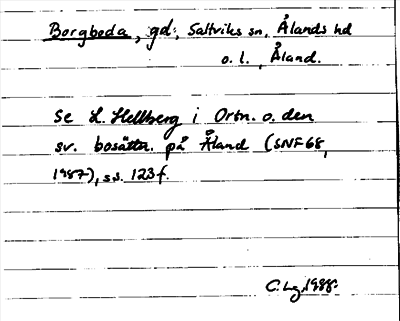 Borgboda, gd; Saltviks sn, Ålands hd
o. l., Åland.
Se L. Hellberg i Ortn. o. den
sv. bosättn. på Åland (SNF 68,
1987), ss. 123 f.
C. Lg. 1988.